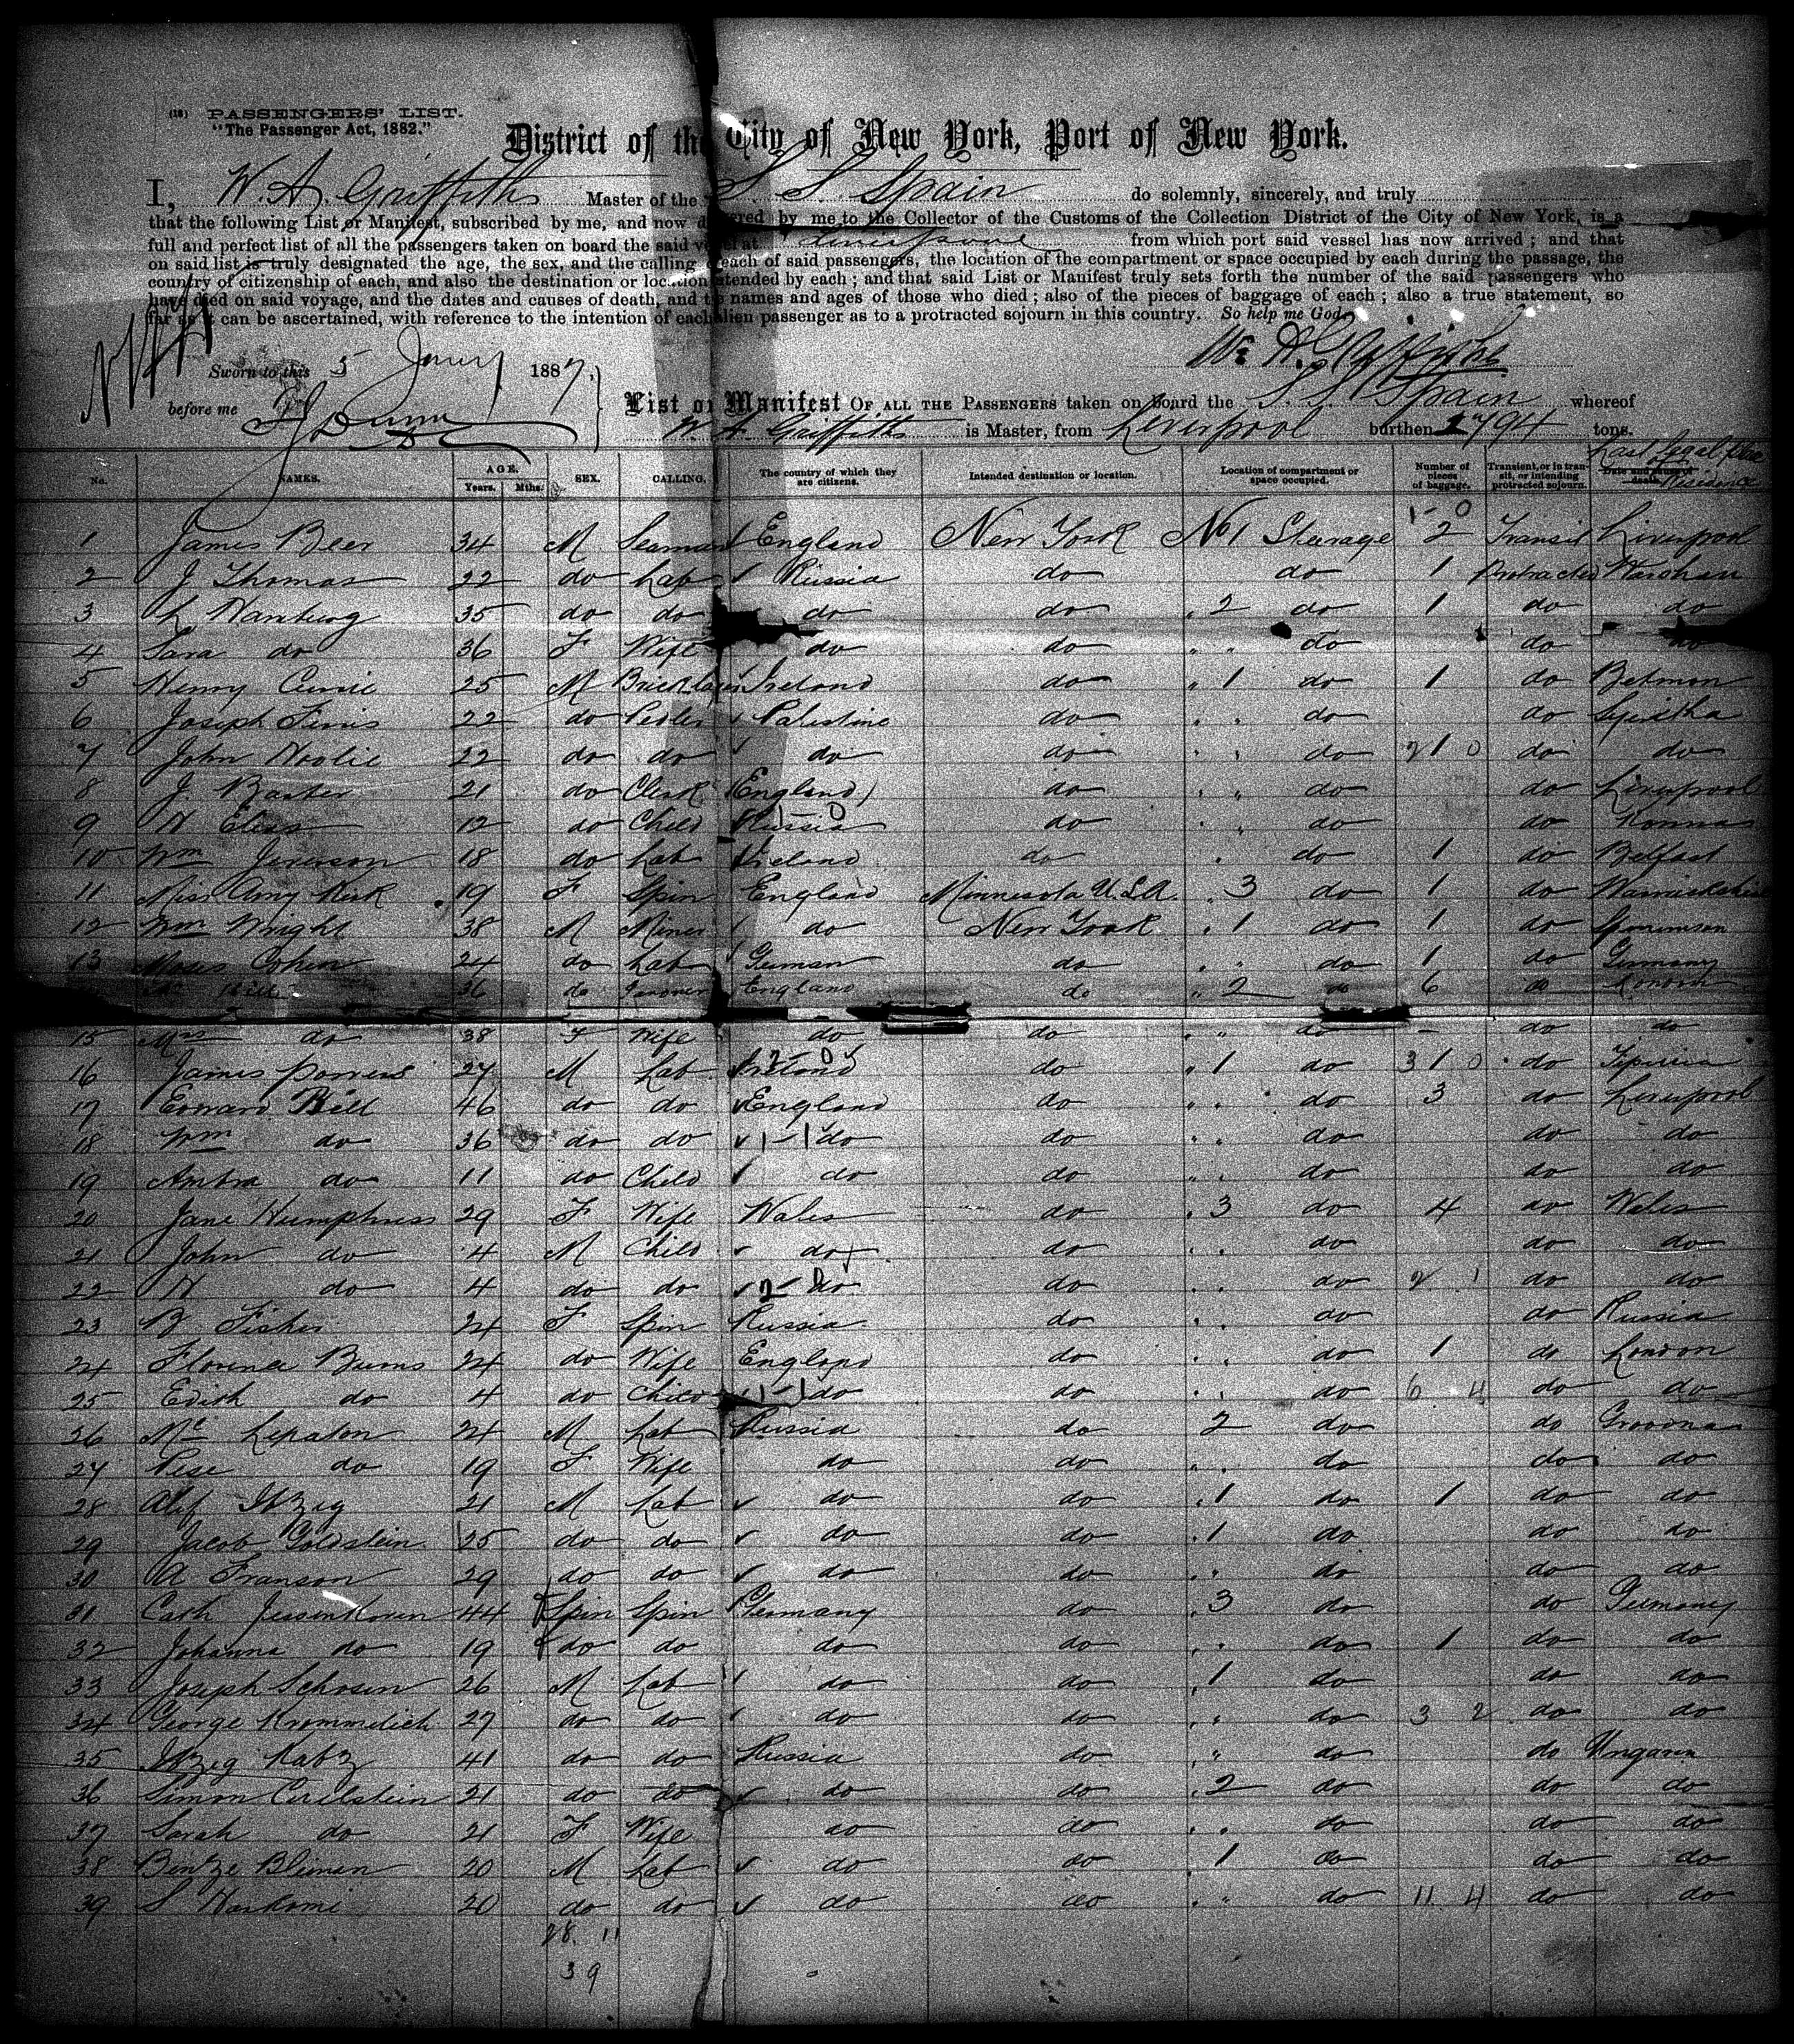 (18) PASSENGERS' LIST.
"The Passenger Act, 1882."
District of the City of New York, Port of New York.
I, W. A. Griffith Master of the S. S. Spain do solemnly, sincerely, and truly
that the following List or Manifest, subscribed by me, and now d ered by me to the Collector of the Customs of the Collection District of the City of New York, is a
full and perfect list of all the passengers taken on board the said vessel at Liverpool from which port said vessel has now arrived ; and that
on said list is truly designated the age, the sex, and the calling each of said passengers, the location of the compartment or space occupied by each during the passage, the
country of citizenship of each, and also the destination or location intended by each ; and that said List or Manifest truly sets forth the number of the said passengers who
have died on said voyage, and the dates and causes of death, and the names and ages of those who died ; also of the pieces of baggage of each ; also a true statement, so
far as it can be ascertained, with reference to the intention of each alien passenger as to a protracted sojourn in this country. So help me God.
Wm A. Griffiths
Sworn to this 5 Jany 1887,
before me
List or Manifest OF ALL THE PASSENGERS taken on board the S. S. Spain whereof
W. A. Griffiths is Master, from Liverpool burthen 2794 tons.
No. NAMES. AGE. Years. Mths. SEX. CALLING. The country of which they are citizens. Intended destination or location. Location of compartment or space occupied. Number of pieces of baggage. Transient, or in transit, or intending protracted sojourn. Date and cause of death. Last legal place of Residence
1-0
1 James Beer 34 M Seaman England New York No 1 Steerage 2 Transit Liverpool
2 J Thomas 22 do Lab Russia do do 1 Protracted Warshau
3 L Wamberg 35 do do do do " 2 do 1 do do
4 Sara do 36 F Wife do do " " do do do
5 Henry 25 M Bricklayer Ireland do " 1 do 1 do
6 Joseph 22 do Pedler Palestine do " " do do
7 John 22 do do do do " " do 2 1 0 do do
8 J. Baxter 21 do Clerk England do " " do do Liverpool
9 N Elias 12 do Child Russia do " " do do
10 Wm 18 do Lab Ireland do " do 1 do Belfast
11 Miss Amy Kirk 19 F Spin England Minnesota U.S.A. " 3 do 1 do Warwickshire
12 Wm Wright 38 M Miner do New York " 1 do 1 do
13 Moses Cohen 24 do Lab German do " " do 1 do Germany
36 do England do " 2 do 6 do London
15 Mrs do 38 F Wife do do " " do - do do
16 James Powers 27 M Lab Ireland do " 1 do 3 1 0 do
17 Edward Bill 46 do do England do " " do 3 do Liverpool
18 Wm do 36 do do 1-1 do do " " do do do
19 do 11 do Child do do " " do do do
20 Jane Humphries 29 F Wife Wales do " 3 do 4 do Wales
21 John do 4 M Child do do " " do do do
22 H do 4 do do 2- do do " " do 2 1 do do
23 B Fisher 24 F Spin Russia do " " do do Russia
24 Florence Burns 24 do Wife England do " " do 1 do London
25 Edith do 4 do Child 1-1 do do " " do 6 4 do do
26 24 M Lab Russia do 2 do do
27 do 19 F Wife do do " " do do do
28 Itzig 21 M Lab do do " 1 do 1 do do
29 Jacob Goldstein 25 do do do do " 1 do do do
30 A Franson 29 do do do do " " do do do
31 Cath 44 Spin Spin Germany do " 3 do do Germany
32 Johanna do 19 do do do do " " do 1 do do
33 Joseph 26 M Lab do do " 1 do do do
34 George 27 do do do do " " do 3 2 do do
35 Itzig Katz 41 do do Russia do " " do do Ungarn
36 Simon 21 do do do do " 2 do do do
37 Sarah do 21 F Wife do do " " do do do
38 20 M Lab do do " 1 do do do
39 S 20 do do do do " " do 11 4 do do
28. 11
39